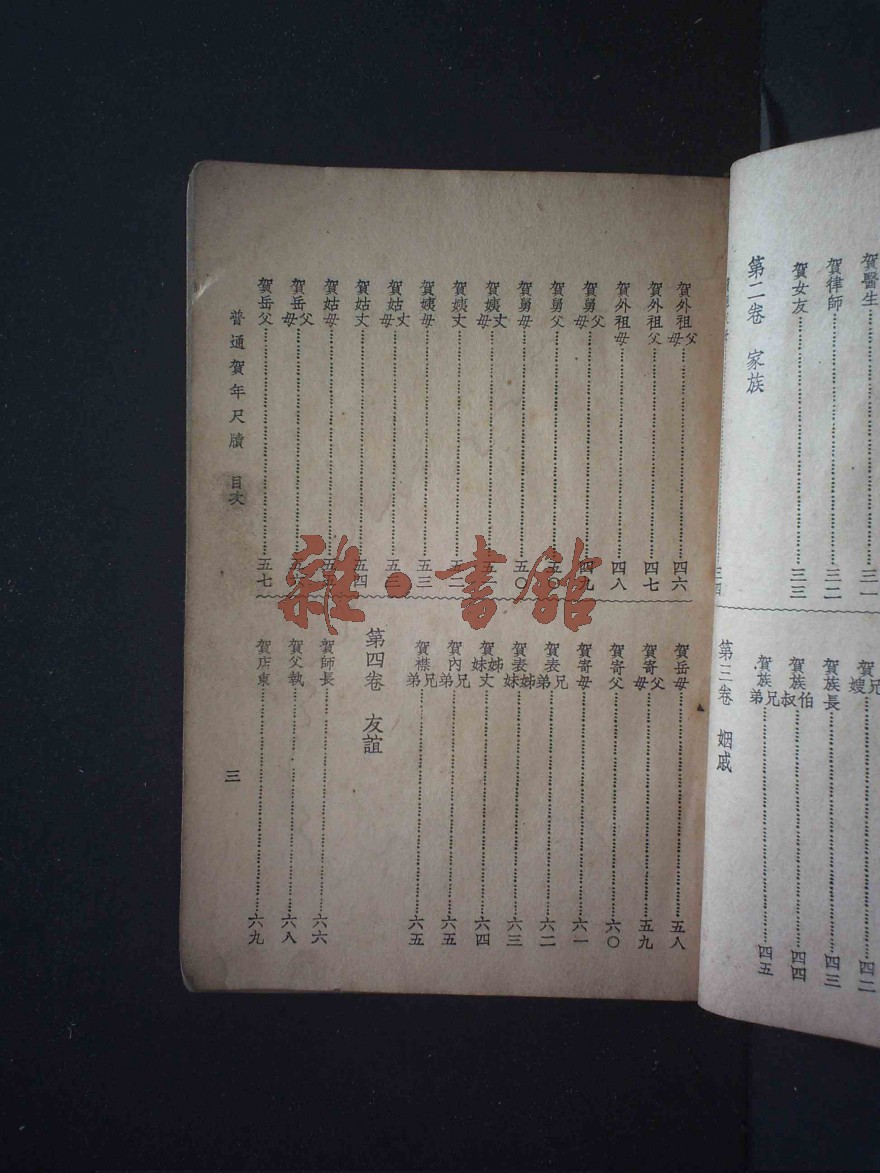 賀醫生 三一
賀律師 三二
賀女友 三三
第二卷 家族
三四
賀兄嫂 四二
賀族長 四三
賀族伯叔 四四
賀族兄弟 四五
第三卷 姻戚
賀外祖父母 四六
賀外祖父 四七
賀外祖母 四八
賀舅父母 四九
賀舅父 五〇
賀舅母 五〇
賀姨丈母
賀姨丈 五二
賀姨母 五三
賀姑丈母 五三
賀姑丈 五四
賀姑母
賀岳父母
賀岳父 五七
賀岳母 五八
賀寄父母 五九
賀寄父 六〇
賀寄母 六一
賀表兄弟 六二
賀表姊妹 六三
賀姊妹丈 六四
賀內兄弟 六五
賀襟兄弟 六五
第四卷 友誼
賀師長 六六
賀父執 六八
賀店東 六九
普通賀年尺牘 目次
三
雜·書館